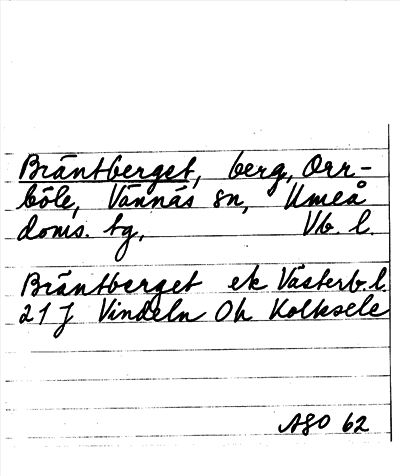 Bräntberget, berg, Orr-
böle, Vännäs sn, Umeå
doms. tg, Vb. l.
Bräntberget ek Västerb. l.
21 J Vindeln Oh Kolksele
ASO 62